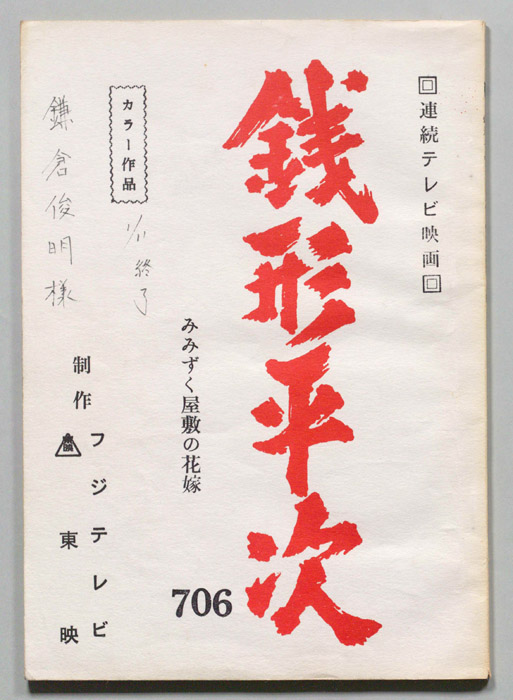 回連続テレビ映画回
銭形平次
みみずく屋敷の花嫁
706
カラー作品
終了
鎌倉俊明様
制作
フジテレビ
東映